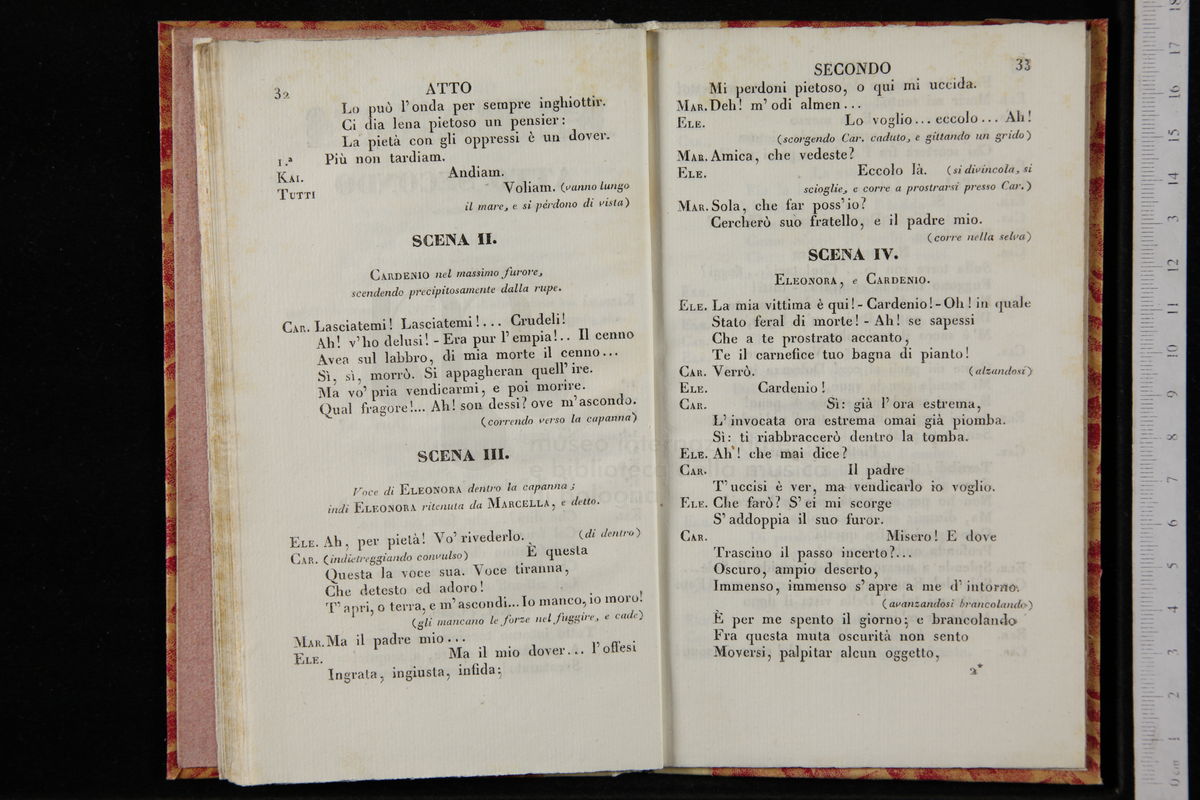 32
ATTO
Lo può l'onda per sempre inghiottir.
Ci dia lena pietoso un pensier:
La pietà con gli oppressi è un dover.
1.ª Più non tardiam.
KAI. Andiam.
TUTTI Voliam. (vanno lungo
il mare, e si pérdono di vista)
SCENA II.
CARDENIO nel massimo furore,
scendendo precipitosamente dalla rupe.
CAR. Lasciatemi! Lasciatemi!... Crudeli!
Ah! v'ho delusi! - Era pur l'empia!.. Il cenno
Avea sul labbro, di mia morte il cenno...
Sì, sì, morrò. Si appagheran quell'ire.
Ma vo' pria vendicarmi, e poi morire.
Qual fragore!... Ah! son dessi? ove m'ascondo.
(correndo verso la capanna)
SCENA III.
Voce di ELEONORA dentro la capanna;
indi ELEONORA ritenuta da MARCELLA, e detto.
ELE. Ah, per pietà! Vo' rivederlo. (di dentro)
CAR. (indietreggiando convulso) È questa
Questa la voce sua. Voce tiranna,
Che detesto ed adoro!
T'apri, o terra, e m'ascondi... Io manco, io moro!
(gli mancano le forze nel fuggire, e cade)
MAR. Ma il padre mio...
ELE. Ma il mio dover... l'offesi
Ingrata, ingiusta, infida;
SECONDO
33
Mi perdoni pietoso, o qui mi uccida.
MAR. Deh! m'odi almen...
ELE. Lo voglio... eccolo... Ah!
(scorgendo Car. caduto, e gittando un grido)
MAR. Amica, che vedeste?
ELE. Eccolo là. (si divincola, si
scioglie, e corre a prostrarsi presso Car.)
MAR. Sola, che far poss'io?
Cercherò suo fratello, e il padre mio.
(corre nella selva)
SCENA IV.
ELEONORA, e CARDENIO.
ELE. La mia vittima è qui! - Cardenio! - Oh! in quale
Stato feral di morte! - Ah! se sapessi
Che a te prostrato accanto,
Te il carnefice tuo bagna di pianto!
CAR. Verrò. (alzandosi)
ELE. Cardenio!
CAR. Sì: già l'ora estrema,
L'invocata ora estrema omai già piomba.
Sì: ti riabbraccerò dentro la tomba.
ELE. Ah! che mai dice?
CAR. Il padre
T'uccisi è ver, ma vendicarlo io voglio.
ELE. Che farò? S'ei mi scorge
S'addoppia il suo furor.
CAR. Misero! E dove
Trascino il passo incerto?...
Oscuro, ampio deserto,
Immenso, immenso s'apre a me d'intorno.
(avanzandosi brancolando)
È per me spento il giorno; e brancolando
Fra questa muta oscurità non sento
Moversi, palpitar alcun oggetto,
2*